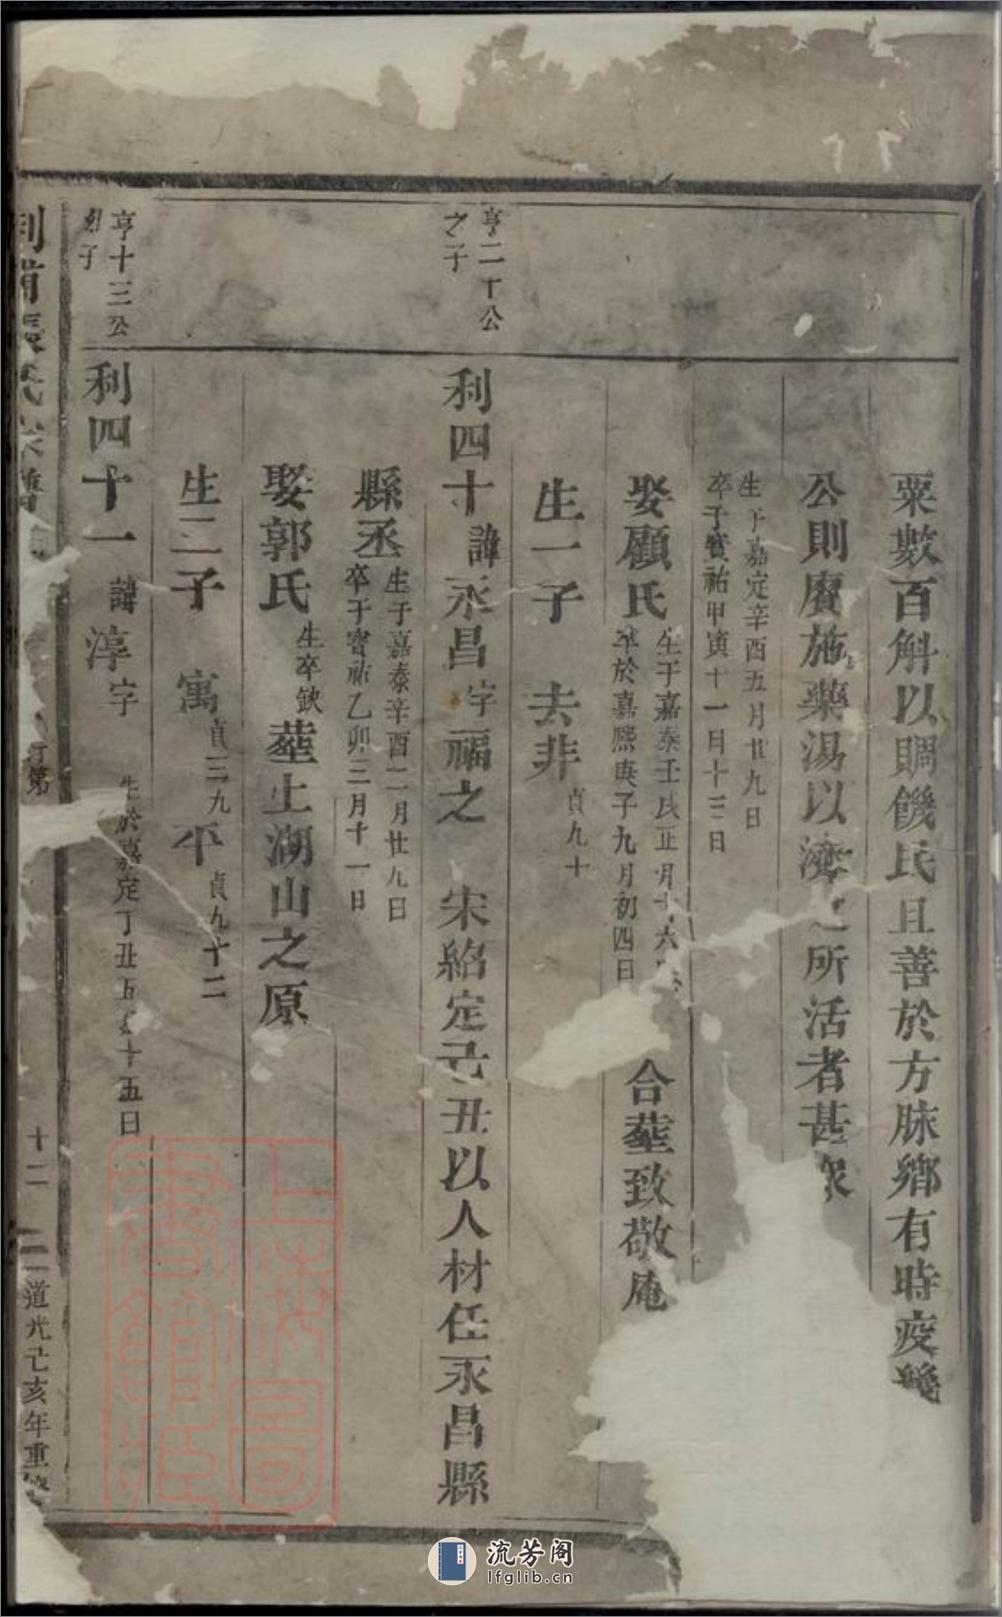 粟數百斛以賙饑民且善於方脉鄉有時疫
公則賡施藥湯以濟之所活者甚衆
生于嘉定辛酉五月廿九日
卒于寳祐甲寅十一月十三日
娶顧氏
生于嘉泰壬戌正月十六
卒於嘉熈庚子九月初四日
合塟致敬庵
生一子 去非 貞九十
亨二十公
之子
利四十 諱永昌 字福之 宋紹定己丑以人材任永昌縣
縣丞
生于嘉泰辛酉二月廿九日
卒于寳祐乙卯三月十一日
娶郭氏 生卒欽 塟上湖山之原
生二子 寓 貞三九 平 貞九十二
亨十三公
子
利四十一 諱淳 字 生於嘉定丁丑五月十五日
張氏宗譜
行第
十二
道光己亥年重修
上海圖書館藏
流芳阁
lfglib.cn